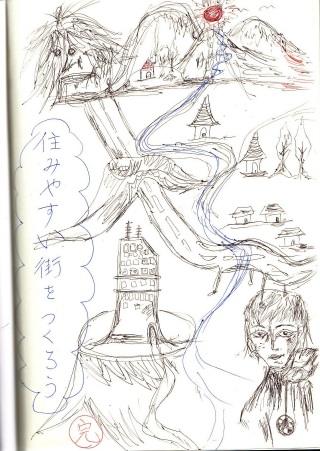 住みやすい街をつくろう
完